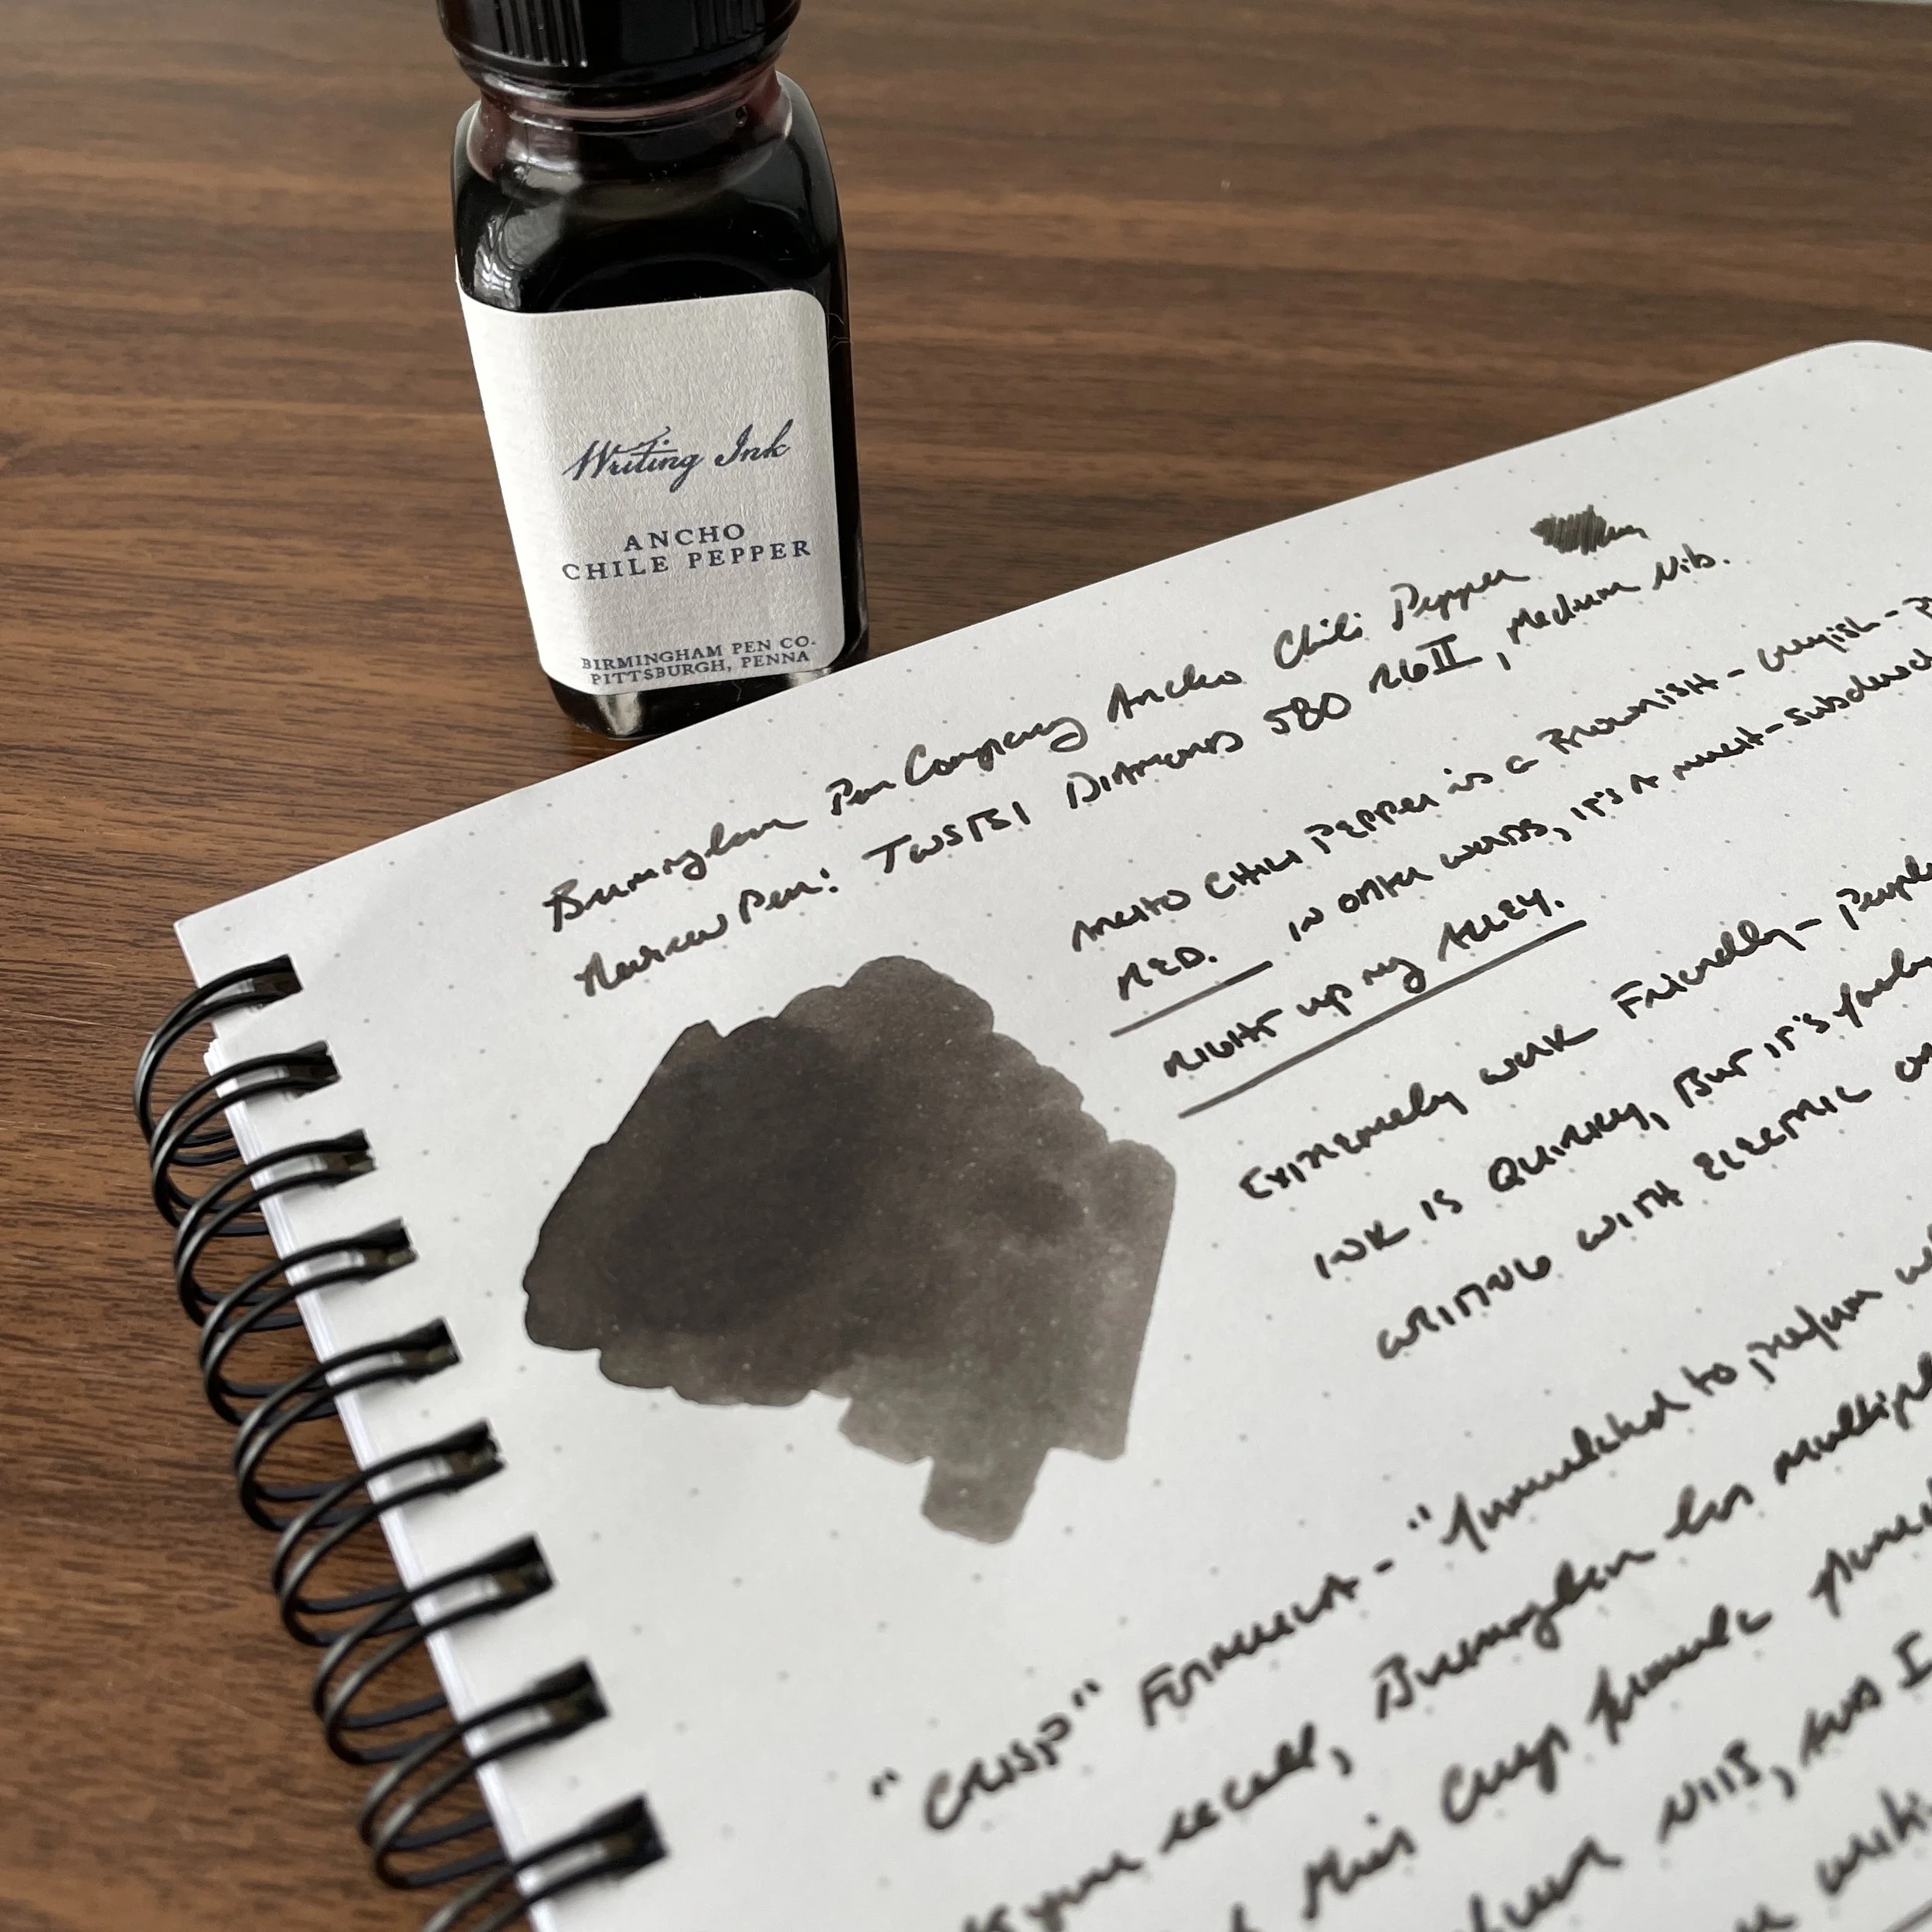 Writing Ink
ANCHO
CHILE PEPPER
BIRMINGHAM PEN CO.
PITTSBURGH, PENNA
Birmingham Pen Company Ancho Chili Pepper
Review Pen: TWSBI DIAMOND 580 RGII, Medium Nib.
ANCHO CHILI PEPPER is a BROWNISH - Greyish -
RED. IN OTHER WORDS, IT'S A much-subdued
RIGHT up my ALLEY.
EXTREMELY WORK FRIENDLY - People
INK IS QUIRKY, BUT IT'S
WRITING WITH ELECTRIC
"CRISP" FORMULA - "formulated to perform
you recall, Birmingham has multiple
this Crisp formula
NIBS, AND I